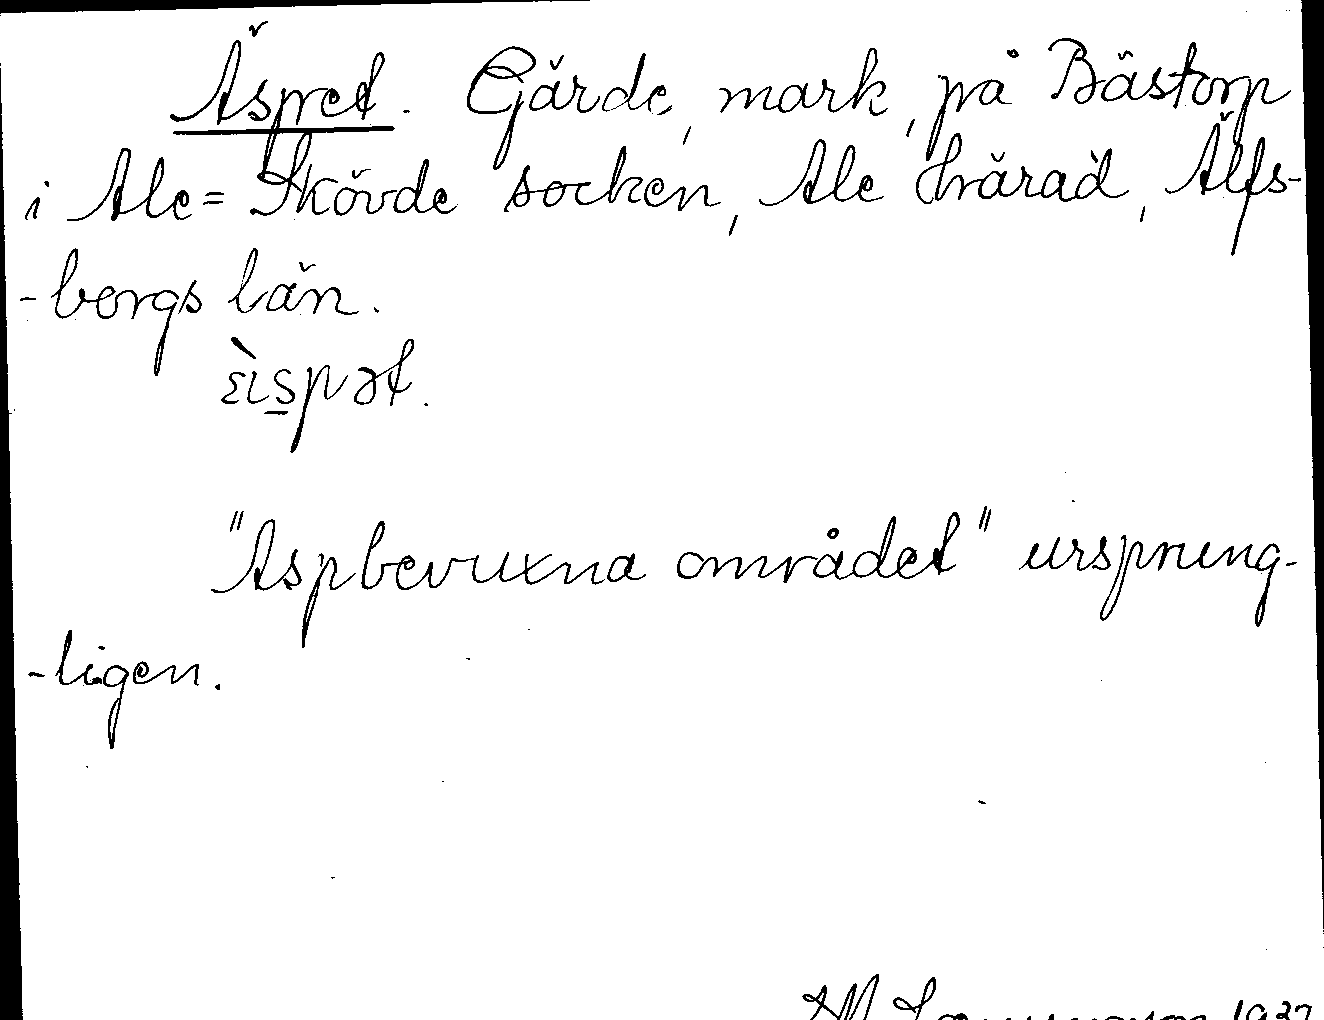 Äspret. Gärde, mark, på Bästorp
i Ale=Skövde socken, Ale härad, Älfs-
-borgs län.
ὲιs̲pət.
"Aspbevuxna området" ursprung-
-ligen.
1937